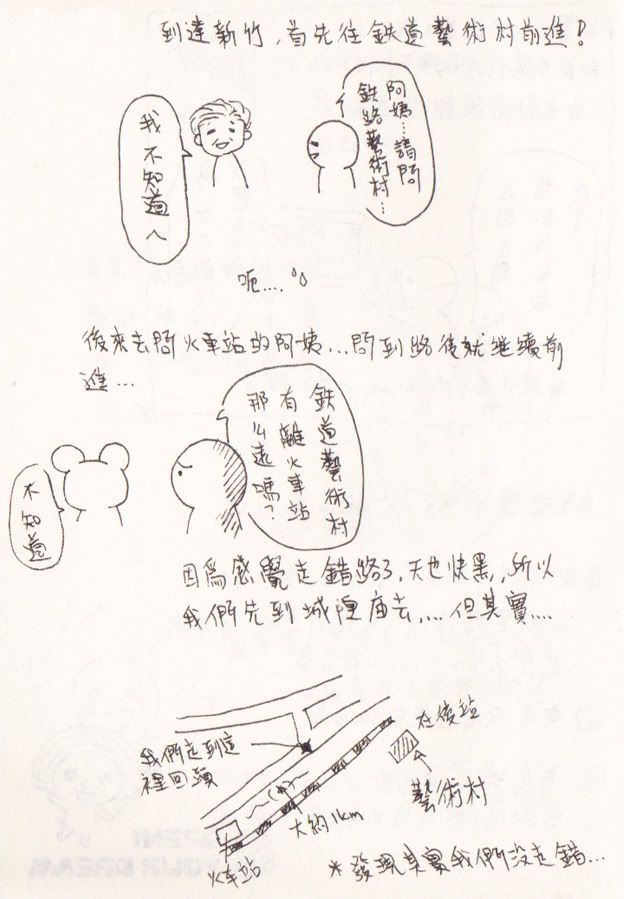 到達新竹，首先往鉄道藝術村前進！
阿姨…請問
鉄路藝術村…
我不知道ㄟ
呃....
後來去問火車站的阿姨...問到路後就継續前
進...
鉄道藝術村
有離火車站
那么遠嗎？
不知道
因為感覺走錯路了，天也快黑，所以
我們先到城隍庙去，... 但其實...
在後站
我們走到這
裡回頭
藝術村
大約1km
火車站
*發現其實我們沒走錯...